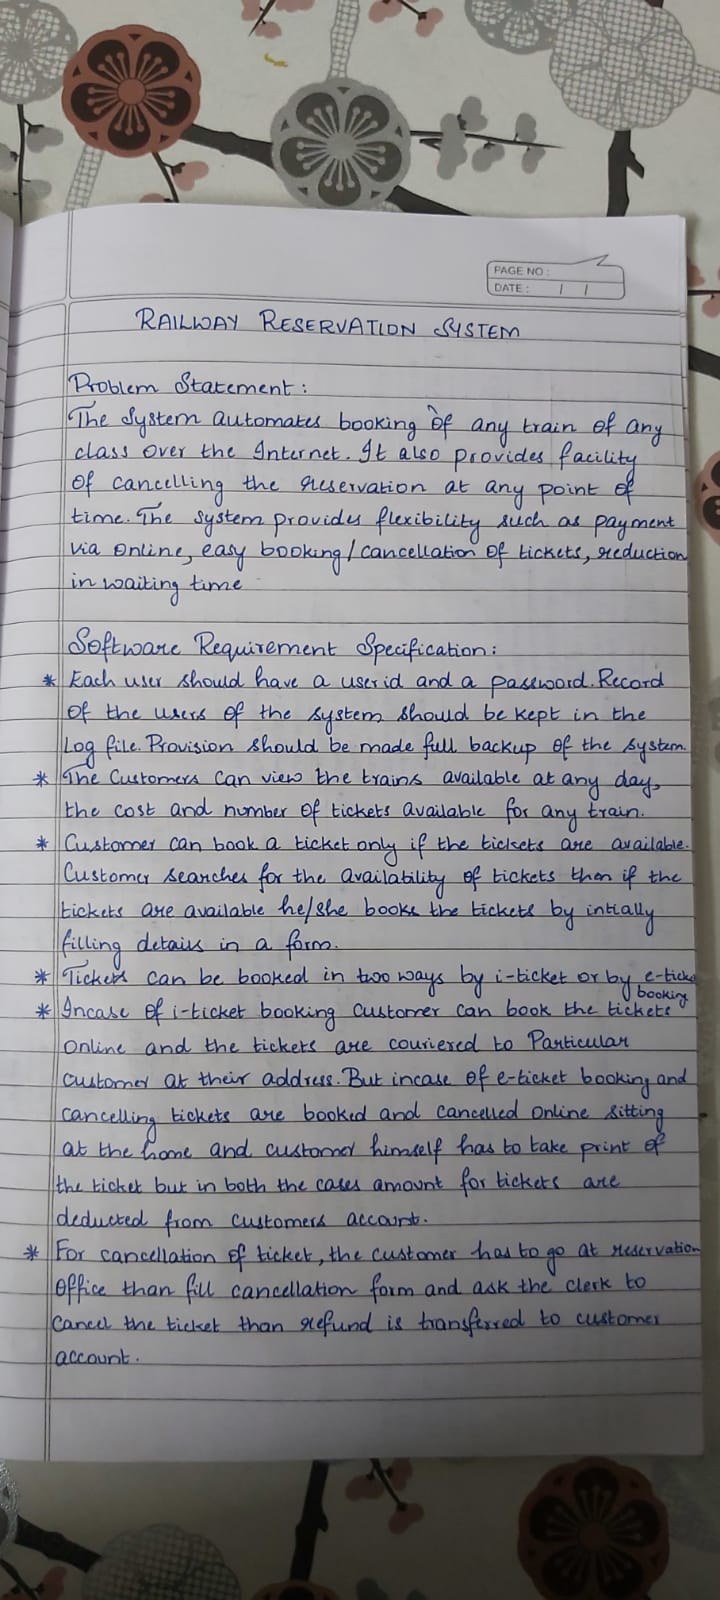 PAGE NO :
DATE : / /
RAILWAY RESERVATION SYSTEM
Problem Statement :
The System automates booking of any train of any
class over the Internet. It also provides facility
of cancelling the reservation at any point of
time. The system provides flexibility such as payment
via online, easy booking/cancellation of tickets, reduction
in waiting time
Software Requirement Specification :
* Each user should have a userid and a password. Record
of the users of the system should be kept in the
Log file. Provision should be made full backup of the system.
* The Customers can view the trains available at any day,
the cost and number of tickets available for any train.
* Customer can book a ticket only if the tickets are available.
Customer searches for the availability of tickets then if the
tickets are available he/she books the tickets by intially
filling details in a form.
* Tickets can be booked in two ways by i-ticket or by e-ticket
booking
* Incase of i-ticket booking customer can book the tickets
online and the tickets are couriered to Particular
customer at their address. But incase of e-ticket booking and
cancelling tickets are booked and cancelled online sitting
at the home and customer himself has to take print of
the ticket but in both the cases amount for tickets are
deducted from customers account.
* For cancellation of ticket, the customer has to go at reservation
office than fill cancellation form and ask the clerk to
cancel the ticket than refund is transferred to customer
account.